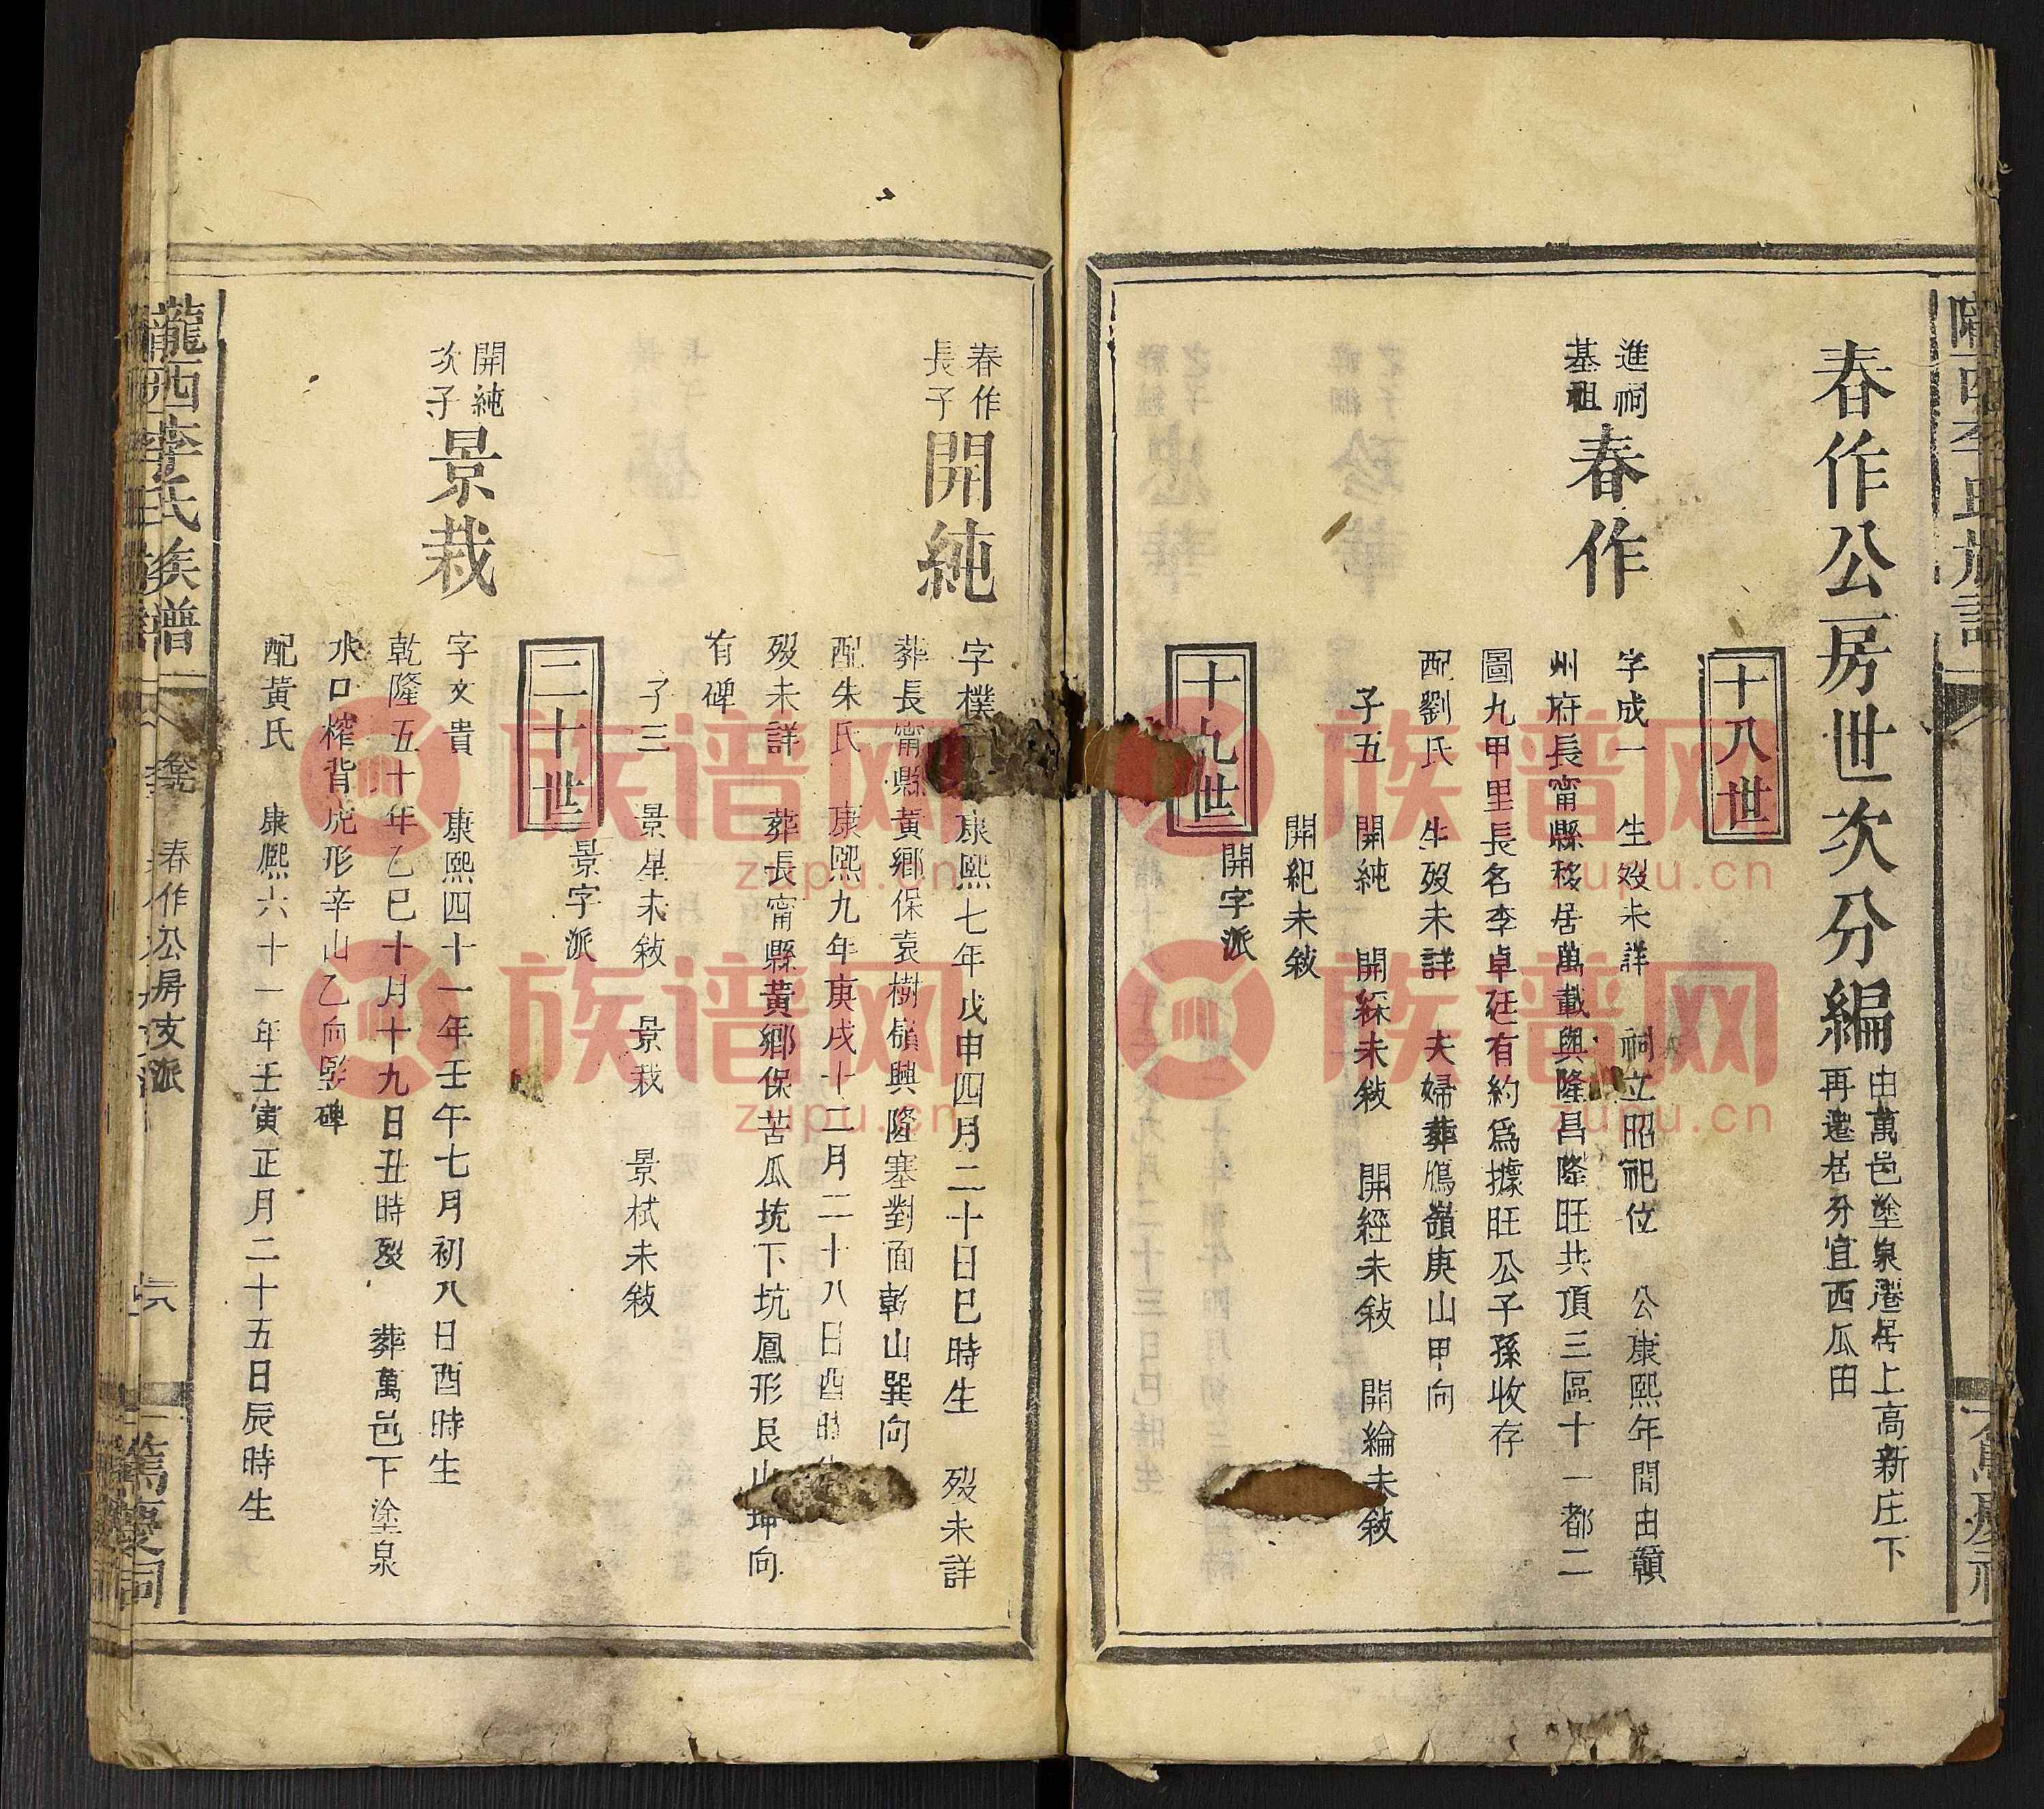 春作公房世次分編
由萬邑塗泉港居上高新庄下
再遷居分宜西瓜田
十八世
進祠
基祖
春作
字成一 生歿未詳 祠立昭祀位 公康熙年間由贛
州府長甯縣移居萬載與隆昌隆旺共頂三區十一都二
圖九甲里長名李卓廷有約為據旺公子孫收存
配劉氏 生歿未詳 夫婦葬鴈嶺庚山甲向
子五 開純 開綵未敍 開經未敍 開綸未敍
開紀未敍
十九世
開字派
春作
長子
開純
字樸 康熙七年戊申四月二十日巳時生 歿未詳
葬長甯縣黃鄉保袁樹嶺興隆塞對面乾山巽向
配朱氏 康熙九年庚戌十二月二十八日酉時
歿未詳 葬長甯縣黃鄉保苦瓜坑下坑鳳形艮山坤向
有碑
子三 景星未敍 景栽 景栻未敍
二十世
景字派
開純
次子
景栽
字文貴 康熙四十一年壬午七月初八日酉時生
乾隆五十年乙巳十月十九日丑時歿 葬萬邑下塗泉
水口榨背虎形辛山乙向竪碑
配黃氏 康熙六十一年壬寅正月二十五日辰時生
隴西李氏族譜
春作公房支派
篤慶祠
族谱网
zupu.cn
族谱网
zupu.cn
族谱网
zupu.cn
族谱网
zupu.cn